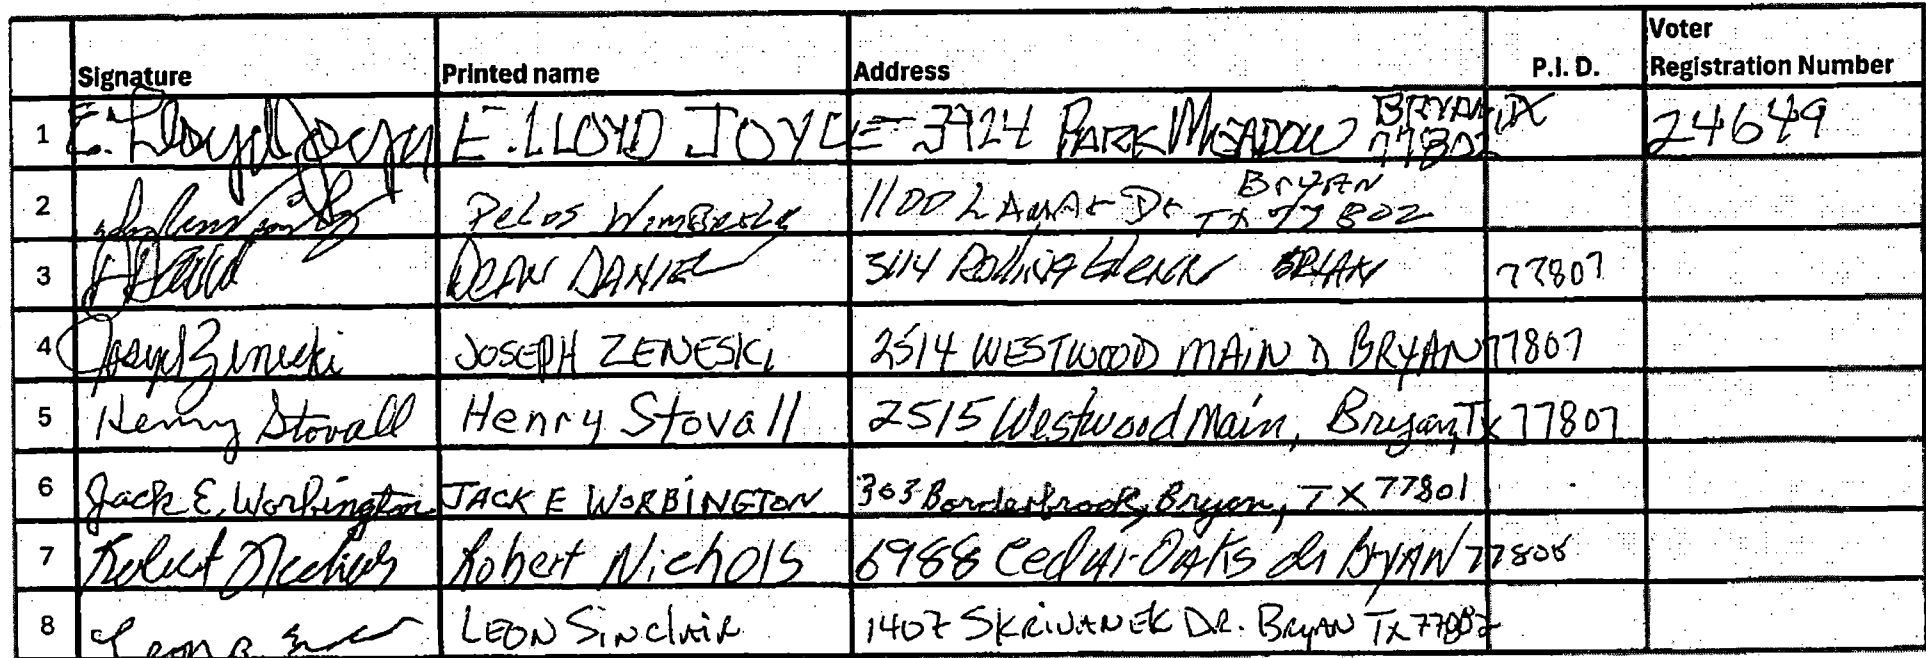 Signature Printed name Address P.I. D. Voter Registration Number
1 E. Lloyd Joyce E. LLOYD JOYCE 3924 PARK MEADOW BRYAN, TX 77802 24649
2 Delos Wimberly 1100 Dr BRYAN TX 77802
3 DEAN DANIEL 3114 Rolling Glenn BRYAN 77807
4 Joseph Zeneski JOSEPH ZENESKI 2514 WESTWOOD MAIN D BRYAN 77807
5 Henry Stovall Henry Stovall 2515 Westwood Main, Bryan, Tx 77807
6 Jack E. Worbington JACK E WORBINGTON 303 Borderbrook, Bryan, TX 77801
7 Robert Nichols Robert Nichols 6988 Cedar Oaks dr BryAN 77808
8 Leon LEON SINClAIR 1407 SKRIVANEK DR. BRYAN TX 77802